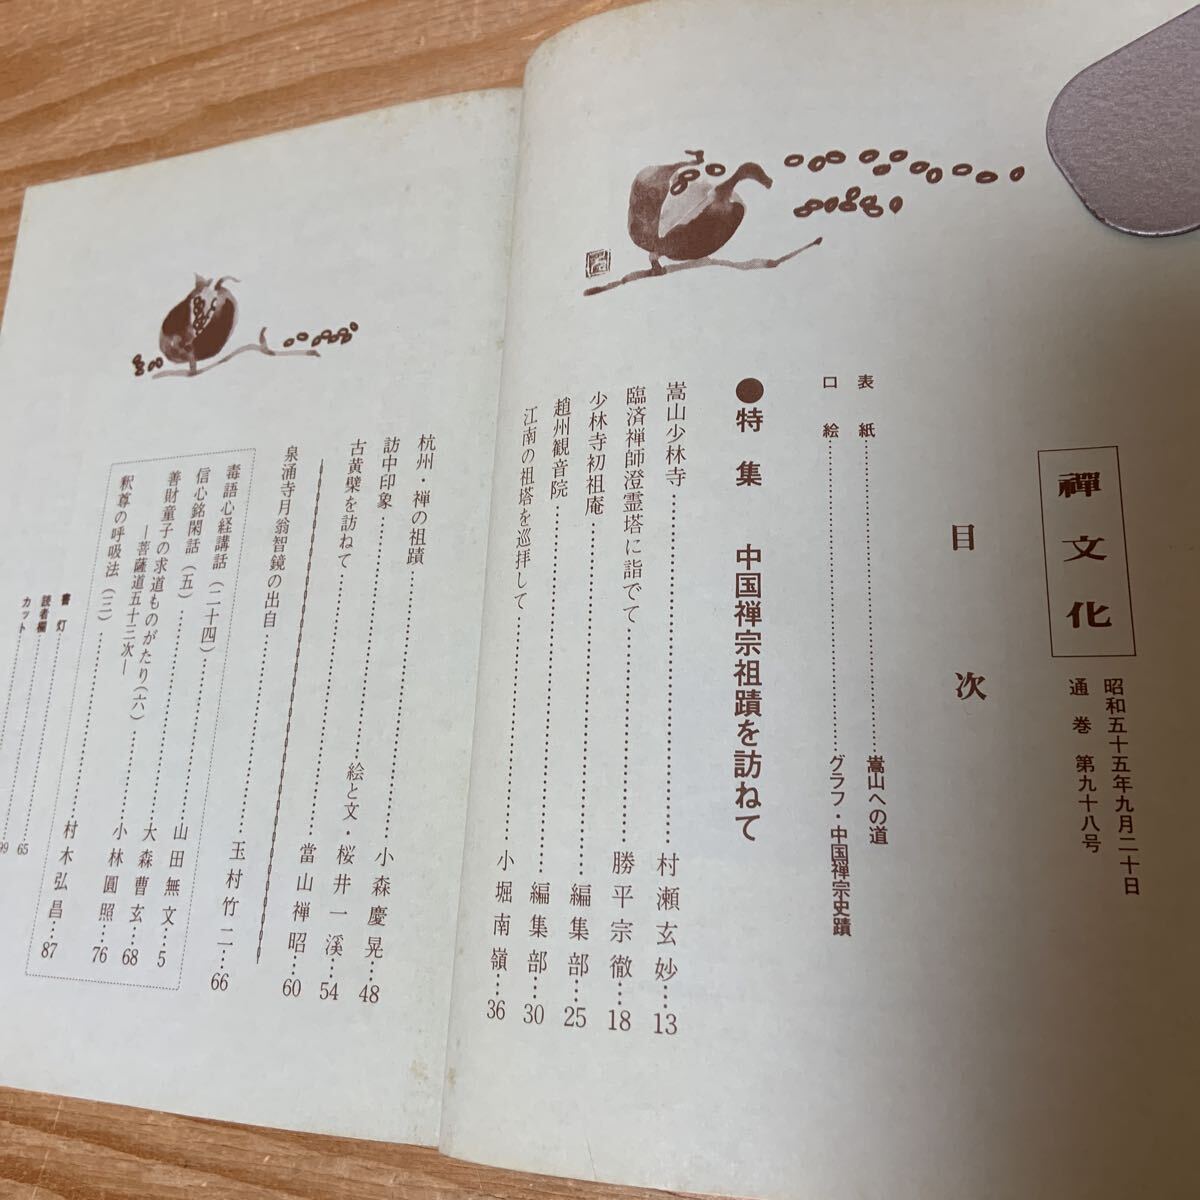 禪文化
昭和五十五年九月二十日
通巻 第九十八号
目次
表紙……………嵩山への道
口絵……………グラフ・中国禅宗史蹟
●特集 中国禅宗祖蹟を訪ねて
嵩山少林寺……………村瀬玄妙…13
臨済禅師澄霊塔に詣でて……………勝平宗徹…18
少林寺初祖庵……………編集部…25
趙州観音院……………編集部…30
江南の祖塔を巡拝して……………小堀南嶺…36
杭州・禅の祖蹟……………小森慶晃…48
訪中印象……………絵と文・桜井一溪…54
古黄檗を訪ねて……………當山禅昭…60
泉涌寺月翁智鏡の出自……………玉村竹二…66
毒語心経講話（二十四）……………山田無文…5
信心銘閑話（五）……………大森曹玄…68
善財童子の求道ものがたり（六）……………小林圓照…76
―菩薩道五十三次―
釈尊の呼吸法（三）……………村木弘昌…87
書灯……………65
読者欄……………99
カット